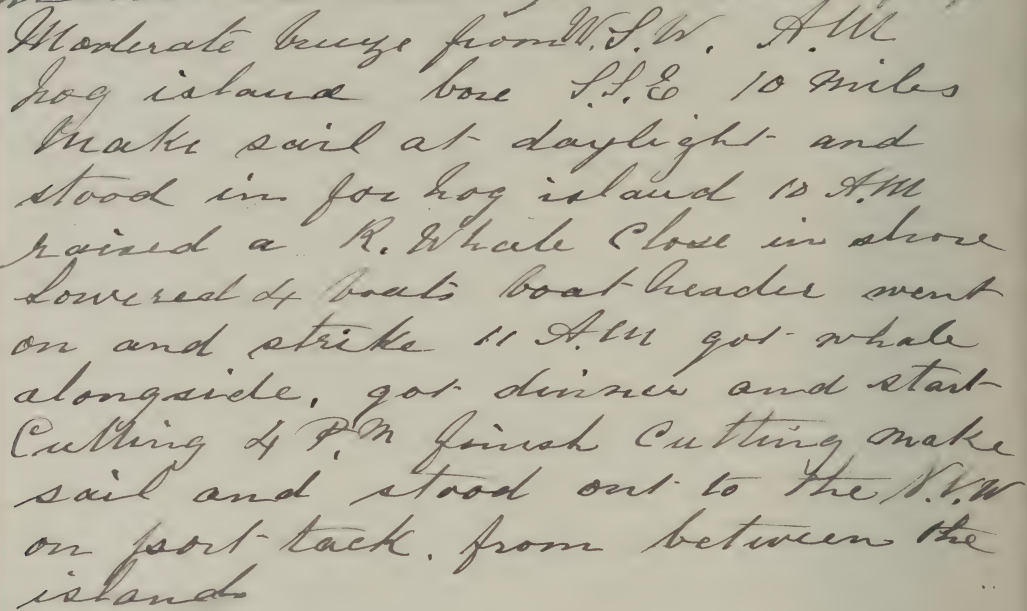 Moderate breeze from W.S.W. A.M
hog island bore S.S.E 10 miles
Make sail at daylight and
stood in for hog island 10 A.M
raised a R. Whale Close in shore
Lowered 4 boats boat header went
on and strike 11 A.M got whale
alongside. got dinner and start
Cutting 4 P.M finish Cutting make
sail and stood out to the N.N.W
on port tack. from between the
islands